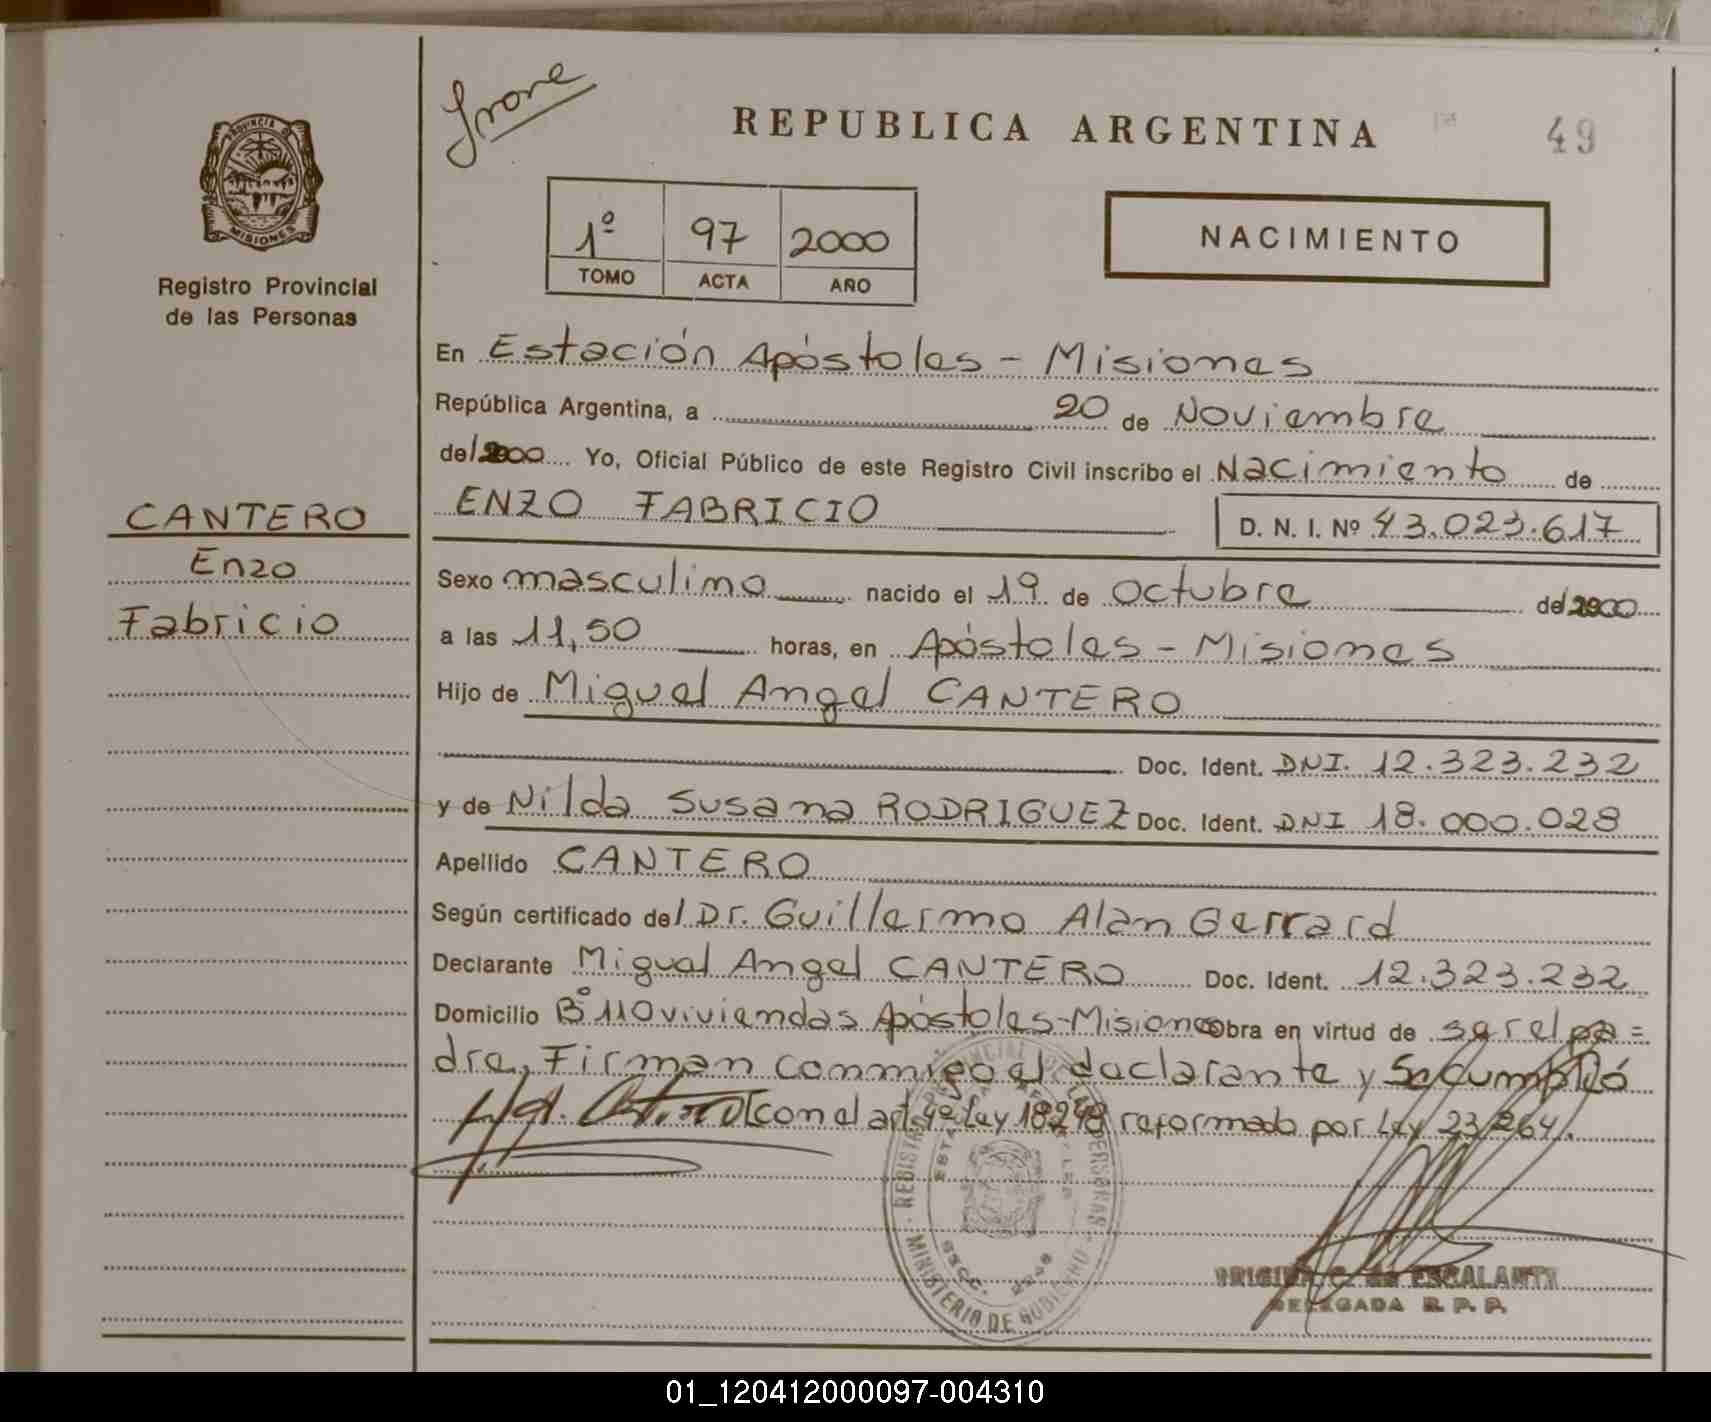 Irone
REPUBLICA ARGENTINA
49
PROVINCIA DE
MISIONES
Registro Provincial
de las Personas
1º 97 2000
TOMO ACTA AÑO
NACIMIENTO
En Estación Apóstoles - Misiones
República Argentina, a 20 de Noviembre
del 2000 Yo, Oficial Público de este Registro Civil inscribo el Nacimiento de
ENZO FABRICIO D. N. I. Nº 43.023.617
CANTERO
Enzo
Fabricio
Sexo masculino nacido el 19 de Octubre del 2000
a las 11,50 horas, en Apóstoles - Misiones
Hijo de Miguel Angel CANTERO
Doc. Ident. DNI. 12.323.232
y de Nilda Susana RODRIGUEZ Doc. Ident. DNI 18.000.028
Apellido CANTERO
Según certificado del Dr. Guillermo Alan Gerrard
Declarante Miguel Angel CANTERO Doc. Ident. 12.323.232
Domicilio Bº 110 viviendas Apóstoles-Misiones obra en virtud de ser el pa=
dre, Firman conmigo el declarante y Se cumplió
con el art. 4º Ley 18248 reformado por Ley 23264.
REGISTRO PROVINCIAL DE LAS PERSONAS
MINISTERIO DE GOBIERNO
C. de ESCALANTE
DELEGADA R. P. P.
01_120412000097-004310